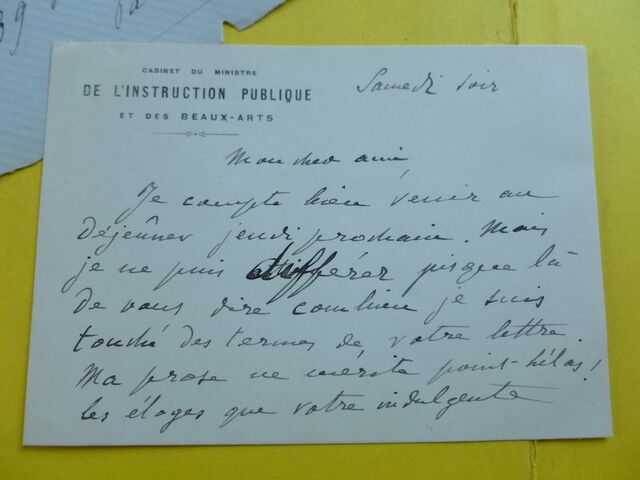 CABINET DU MINISTRE
DE L'INSTRUCTION PUBLIQUE
ET DES BEAUX-ARTS
Samedi soir
Mon cher ami
Je compte bien venir au
déjeûner jeudi prochain. Mais
je ne puis différer jusque là
de vous dire combien je suis
touché des termes de votre lettre.
Ma prose ne mérite point - hélas !
les éloges que votre indulgente